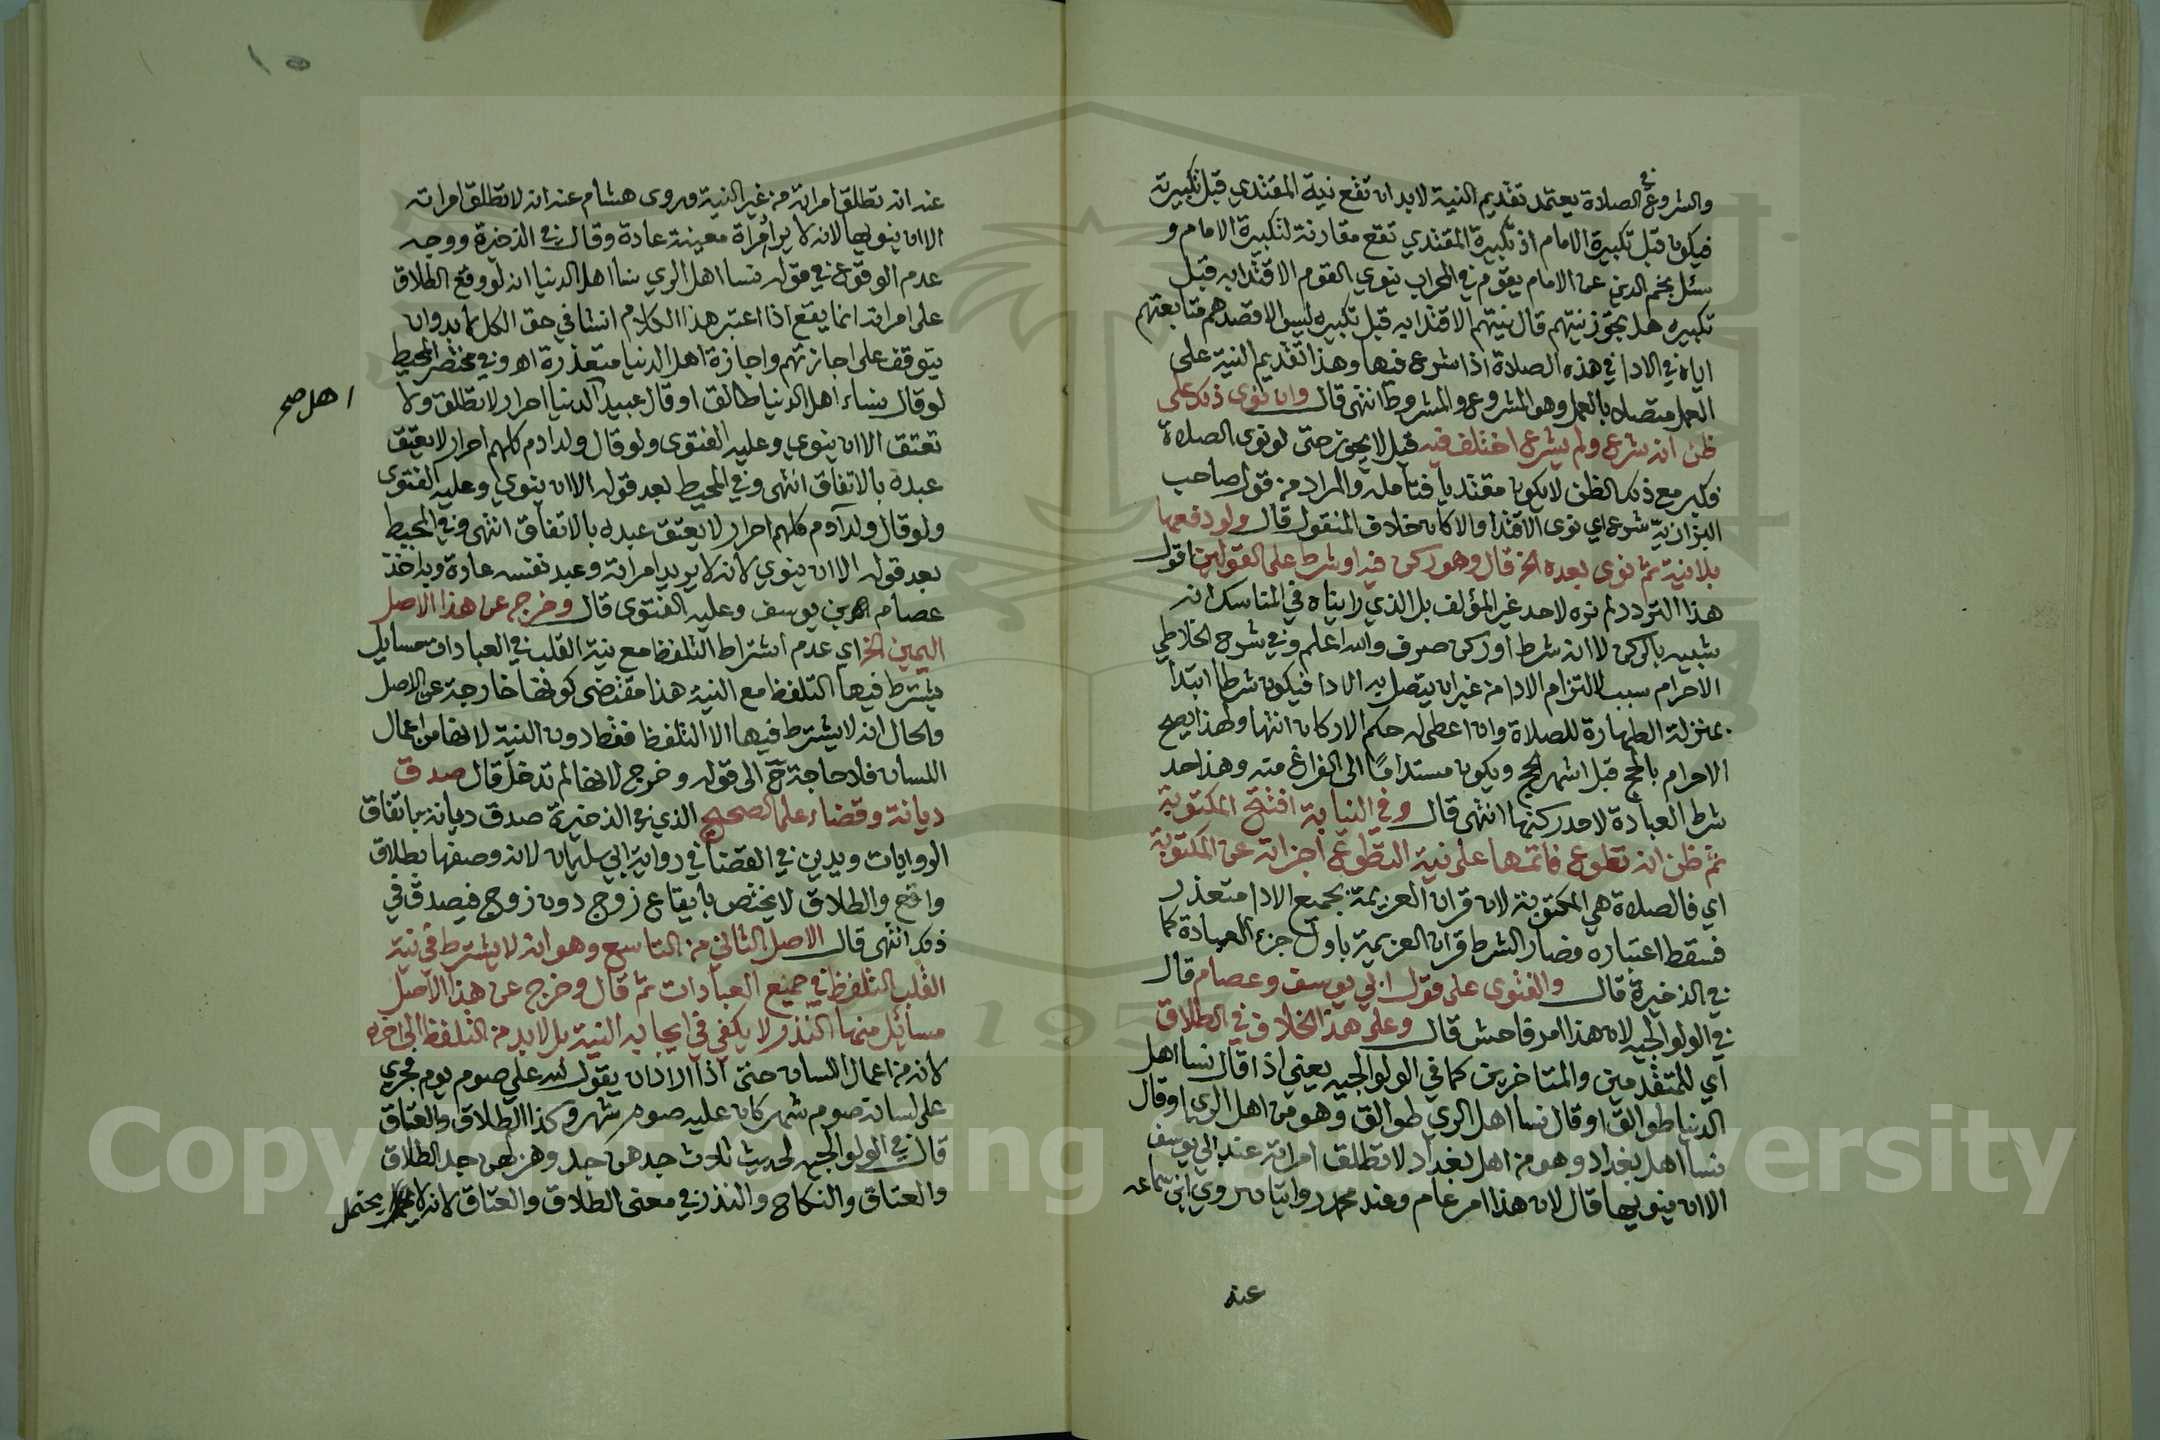 والشروع في الصلاة يعتمد تقديم النية لابد ان تقع نية المقتدي قبل تكبيرته
فيكون قبل تكبيرة الامام اذ تكبيرة المقتدي تقع مقارنة لتكبيرة الامام و
سئل نجم الدين عن الامام يقوم في المحراب ينوي القوم الاقتدا به قبل
تكبيره هل يجوز نيتهم قال نيتهم الاقتدا به قبل تكبيره ليس الا قصدهم متابعتهم
اياه في الادا في هذه الصلاة اذا شرع فيها وهذا تقديم النية على
العمل متصلا بالعمل وهو المشروع والمشروط انتهى قال وان نوى ذلك على
ظن انه شرع ولم يشرع اختلف فيه قيل لا يجوز حتى لو نوى الصلاة
فكبر مع ذلك الظن لا يكون مقتديا فتامله والمراد من قول صاحب
البزازية شرع اي نوى الاقتدا والا كان خلاف المنقول قال ولو دفعها
بلا نية ثم نوى بعده الخ قال وهو ركن فيه او شرط على القولين اقول
هذا التردد لم نره لاحد غير المؤلف بل الذي رايناه في المناسك انه
شبيه بالركن لا انه شرط او ركن صرف والله اعلم وفي شرح الخلاطي
الاحرام سبب لالتزام الادا من غير ان يتصل به الادا فيكون شرطا ابتدا
بمنزلة الطهارة للصلاة وان اعطى له حكم الاركان انتها ولهذا يصح
الاحرام بالحج قبل اشهر الحج ويكون مستداما الى الفراغ منه وهذا حد
شرط العبادة لا حد ركنها انتهى قال وفي النيابة افتتح المكتوبة
ثم ظن انه تطوع فاتمها على نية التطوع اجزاته عن المكتوبة
اي فالصلاة هي المكتوبة لان قران العزيمة بجميع الادا متعذر
فسقط اعتباره فصار الشرط قران العزيمة باول جزء العبادة كما
في الذخيرة قال والفتوى على قول ابي يوسف وعصام قال
في الولوالجية لان هذا امر فاحش قال وعلى هذا الخلاف في الطلاق
اي للمتقدمين والمتاخرين كما في الولوالجيه يعني اذا قال نسا اهل
الدنيا طوالق او قال نسا اهل الري طوالق وهو من اهل الري او قال
نسا اهل بغداد وهو من اهل بغداد لا تطلق امراته عند ابي يوسف
الا ان ينويها قال لان هذا امر عام وعند محمد روايتان روي ابن سماعه
عنه
١٥
عنه انه تطلق امراته من غير النية وروى هشام عنه انه لا تطلق امراته
الا ان ينويها لانه لا يراد امراة معينة عادة وقال في الذخيرة ووجه
عدم الوقوع في قوله نسا اهل الري نسا اهل الدنيا انه لو وقع الطلاق
على امراته انما يقع اذا اعتبر هذا الكلام انشا في حق الكل لا بد وان
يتوقف على اجازتهم واجازة اهل الدنيا متعذرة اه وفي مختصر المحيط
لو قال نساء اهل الدنيا طالق او قال عبيد الدنيا احرار لا تطلق ولا
اهل صح
تعتق الا ان ينوي وعليه الفتوى ولو قال ولد ادم كلهم احرار لا يعتق
عبده بالاتفاق انتهى وفي المحيط بعد قوله الا ان ينوي وعليه الفتوى
ولو قال ولد آدم كلهم احرار لا يعتق عبده بالاتفاق انتهى وفي المحيط
بعد قوله الا ان ينوي لانه لا يريد امراته وعبد نفسه عادة وبه اخذ
عصام بن يوسف وعليه الفتوى قال وخرج عن هذا الاصل
اليمين الخ اي عدم اشتراط التلفظ مع نية القلب في العبادات مسايل
يشترط فيها التلفظ مع النية هذا مقتضى كونها خارجة عن الاصل
والحال انه لا يشترط فيها الا التلفظ فقط دون النية لانها من اعمال
اللسان فلا حاجة ح الى قوله وخرج لانها لم تدخل قال صدق
ديانة وقضاء على الصحيح الذي في الذخيرة صدق ديانة باتفاق
الروايات ويدين في القضا في رواية ابي سليمان لانه وصفها بطلاق
واقع والطلاق لا يختص بايقاع زوج دون زوج فيصدق في
ذلك انتهى قال الاصل الثاني من التاسع وهو انه لا يشترط في نية
القلب التلفظ في جميع العبادات ثم قال وخرج عن هذا الاصل
مسائل منها النذر لا يكفي في ايجابه النية بل لابد من التلفظ الى اخره
لانه من اعمال اللسان حتى اذا اراد ان يقول لله علي صوم يوم فجرى
على لسانه صوم شهر كان عليه صوم شهر وكذا الطلاق والعتاق
قال في الولوالجيه لحديث ثلاث جدهن جد وهزلهن جد الطلاق
والعتاق والنكاح والنذر في معنى الطلاق والعتاق لانه لا يحتمل